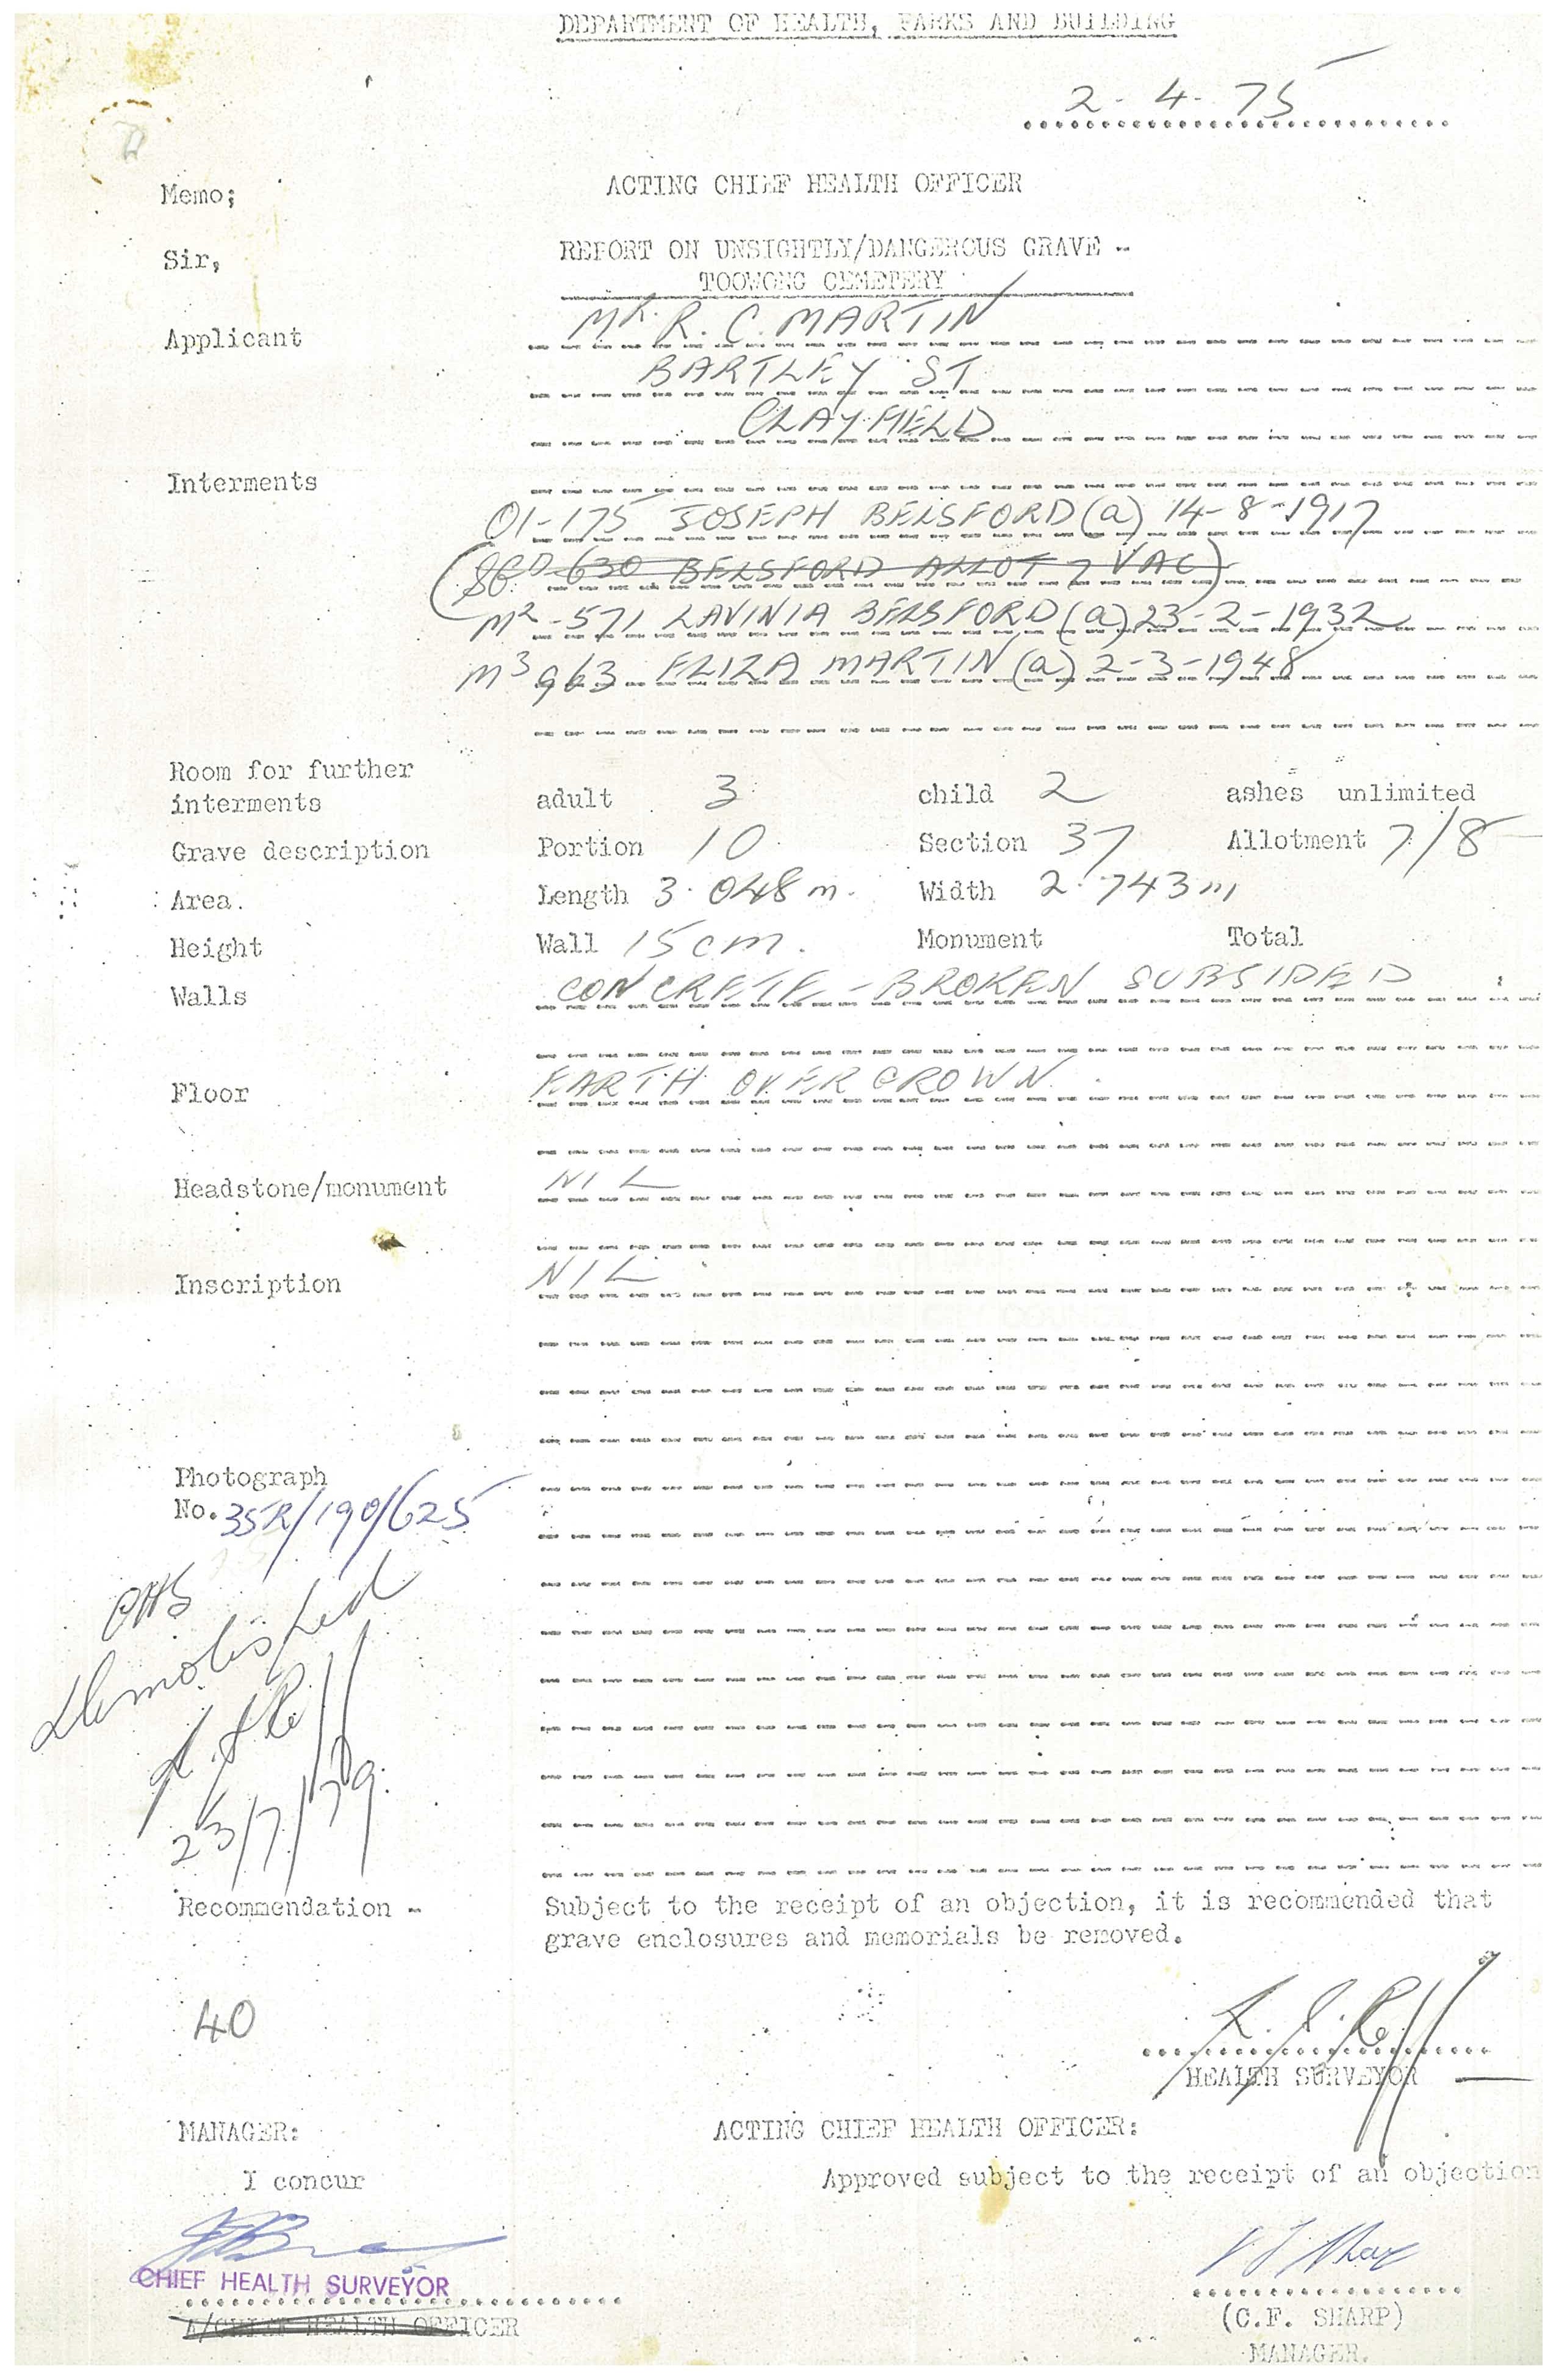 DEPARTMENT OF HEALTH, PARKS AND BUILDING
2-4-75
Memo; ACTING CHIEF HEALTH OFFICER
Sir, REPORT ON UNSIGHTLY/DANGEROUS GRAVE -
TOOWONG CEMETERY
Applicant MR. R. C. MARTIN
BARTLEY ST
CLAYFIELD
Interments
01-175 JOSEPH BELSFORD (a) 14-8-1917
630 BELSFORD ALLOT 7 VAC)
M2-571 LAVINIA BELSFORD (a) 23-2-1932
M3 963 ELIZA MARTIN (a) 2-3-1948
Room for further
interments adult 3 child 2 ashes unlimited
Grave description Portion 10 Section 37 Allotment 7/8
Area. Length 3.048m. Width 2.743m
Height Wall 15cm. Monument Total
Walls CONCRETE - BROKEN SUBSIDED
Floor EARTH OVERGROWN.
Headstone/monument NIL
Inscription NIL
Photograph
No. 35R/190/625
CHS
Demolished
23/7/79.
Recommendation - Subject to the receipt of an objection, it is recommended that
grave enclosures and memorials be removed.
40
HEALTH SURVEYOR
MANAGER: ACTING CHIEF HEALTH OFFICER:
I concur Approved subject to the receipt of an objection
CHIEF HEALTH SURVEYOR
A/CHIEF HEALTH OFFICER (C.F. SHARP)
MANAGER.